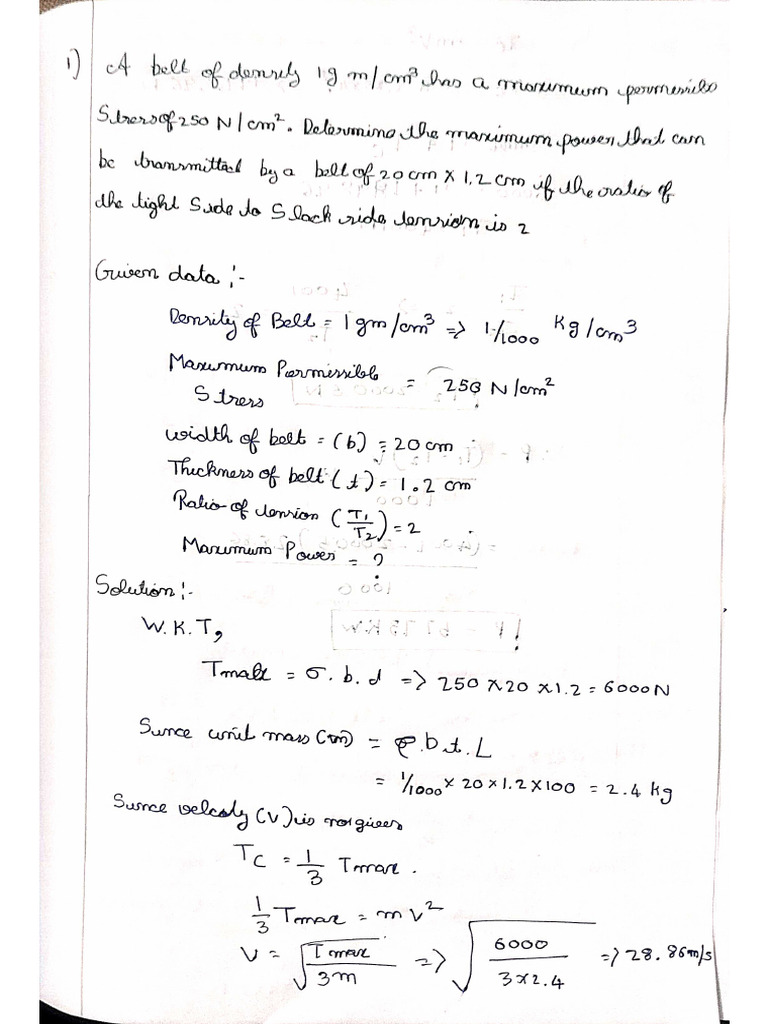 1) A belt of density 1 gm/cm³ has a maximum permissible
Stress of 250 N/cm². Determine the maximum power that can
be transmitted by a belt of 20 cm x 1.2 cm if the ratio of
the tight side to slack side tension is 2
Given data :-
Density of Belt = 1 gm/cm³ => 1/1000 Kg/cm³
Maximum Permissible Stress = 250 N/cm²
width of belt = (b) = 20 cm
Thickness of belt (t) = 1.2 cm
Ratio of tension (T₁/T₂) = 2
Maximum Power = ?
Solution :-
W.K.T,
Tmax = σ.b.d => 250 x 20 x 1.2 = 6000N
Since unit mass (m) = ρ.b.t.L
= 1/1000 x 20 x 1.2 x 100 = 2.4 kg
Since velocity (V) is not given
Tc = 1/3 Tmax.
1/3 Tmax = mv²
V = √(Tmax/3m) => √(6000/3x2.4) => 28.86m/s